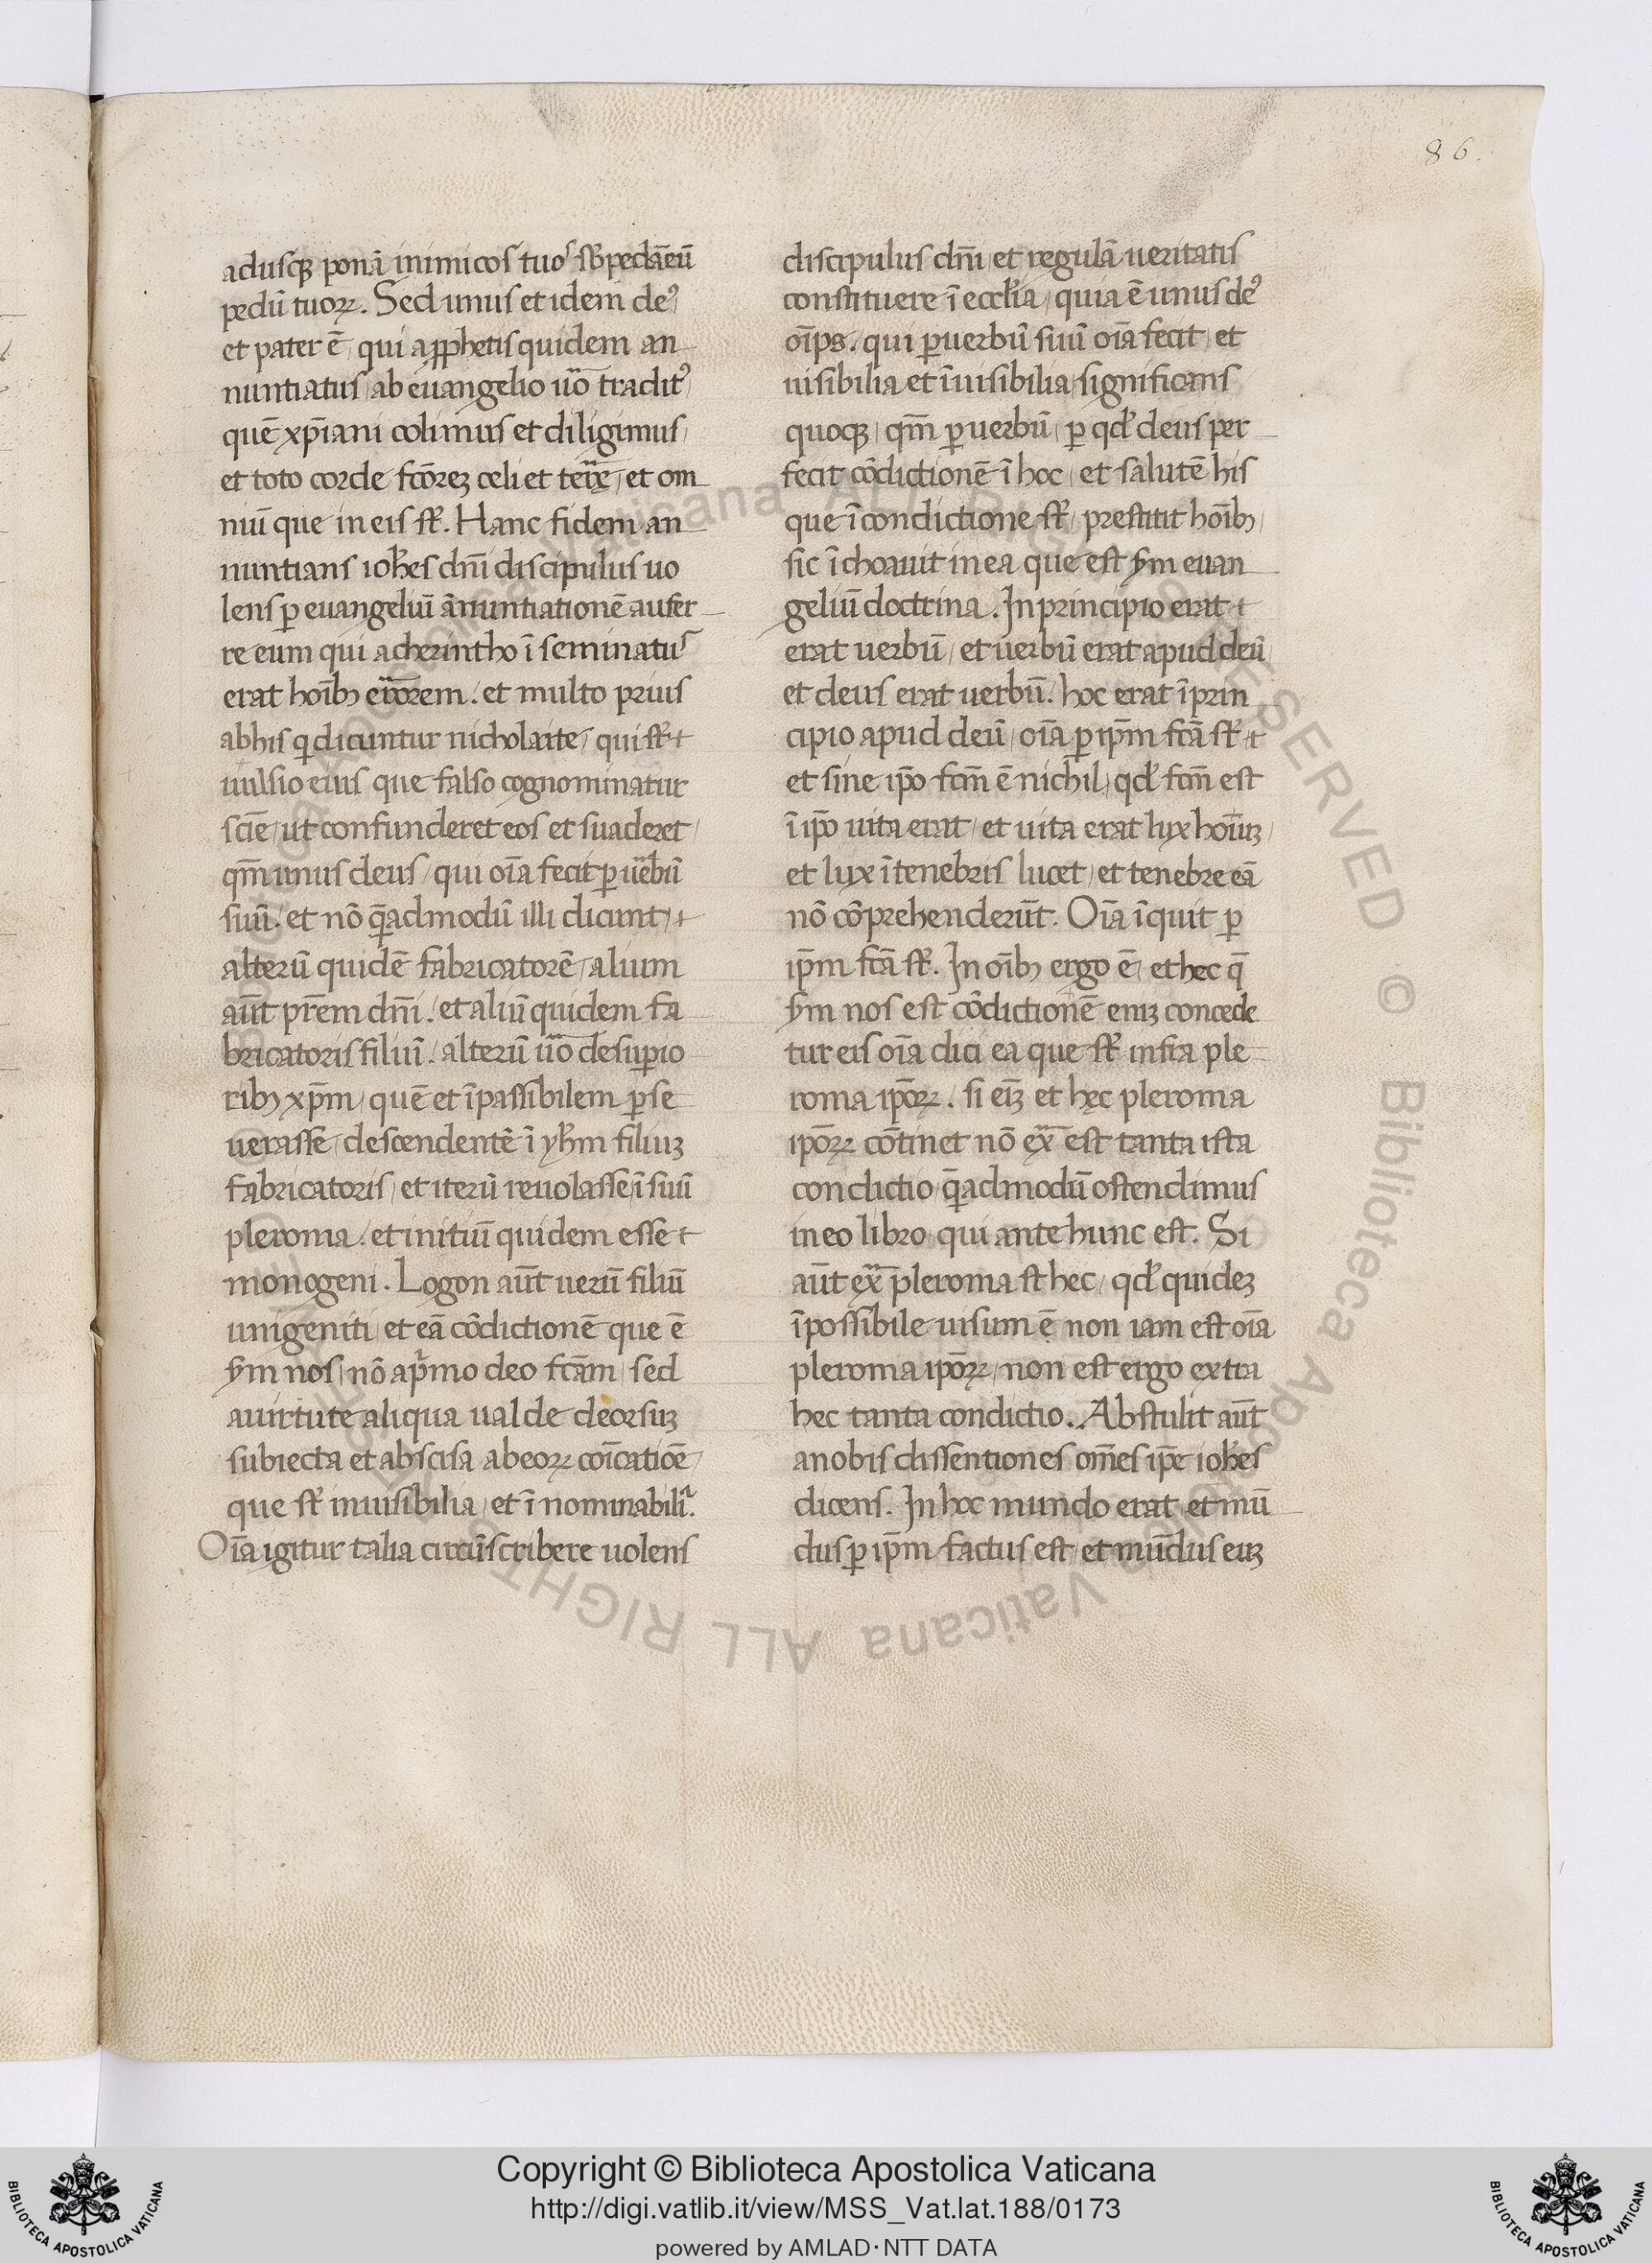 86.
adusq̨ ponā inimicos tuos sb̄pedāeū
pedū tuoꝝ. Sed unus et idem de᷒
et pater ē, qui a ꝓphetis quidem an
nuntiatus, ab euangelio uo tradit᷒
quē xp̄iani colimus et diligimus,
et toto corde fc̄orez celi et terrę, et om
niū que in eis sт̄. Hanc fidem an
nuntians ioh̄es dn̄i discipulus uo
lens ꝑ euangeliū ānuntiationē aufer
re eum qui a cherintho ī seminatus
erat hoīb; errorem. et multo prius
ab his q̇ dicuntur nicholaite, qui st̄
uulsio eius que falso cognominatur
scīe, ut confunderet eos et suaderet,
qm̄ unus deus, qui oīa fecit ꝑ uerbū
suū. et nō q̄admodū illi dicunt,
alterū quidē fabricatorē, alium
aūt pr̄em dn̄i. et aliū quidem fa
bricatoris filiū. alterū uo de suꝑio
rib; xp̄m, quē et īpassibilem ꝑse
uerasse, descendentē ī yh̄m filiuz
fabricatoris, et iterū reuolasse ī suū
pleroma. et initiū quidem esse
monogeni. Logon aūt uerū filiū
unigeniti, et eā cōdictionē que ē
s̄m nos, nō a pͥmo deo fc̄am, sed
a uirtute aliqua ualde deorsuz
subiecta et abscisa ab eoꝝ coīcatiōe,
que st̄ inuisibilia, et ī nominabiliͣ.
Oīa igitur talia circūscribere uolens
discipulus dn̄i, et regulā ueritatis
constituere ī eccl̄ia, quia ē unus de᷒
oīps. qui ꝑ uerbū suū oīa fecit, et
uisibilia et īuisibilia, significans
quoq̨, qm̄ ꝑ uerbū, ꝑ qd̄ deus per
fecit cōdictionē ī hoc, et salutē his
que ī condictione st̄, prestitit hoīb;,
sic īchoauit in ea que est s̄m euan
geliū doctrina. In principio erat
erat uerbū, et uerbū erat apud deū,
et deus erat uerbū. hoc erat ī prin
cipio apud deū, oīa ꝑ ip̄m fc̄a st̄
et sine ip̄o fc̄m ē nichil, qd̄ fc̄m est
ī ip̄o uita erat, et uita erat lux hoīuz,
et lux ī tenebris lucet, et tenebre eā
nō cōprehenderūt. Oīa īquit ꝑ
ip̄m fc̄a st̄. In oīb; ergo ē, et hec q̄
s̄m nos est cōdictionē eniz concede
tur eis oīa dici ea que st̄ infra ple
roma ip̄oꝝ. si eīz et hęc pleroma
ip̄oꝝ cōtinet nō exͣ est tanta ista
condictio, q̄admodū ostendimus
in eo libro, qui ante hunc est. Si
aūt exͣ pleroma st̄ hec, qd̄ quidez
īpossibile uisum ē, non iam est oīa
pleroma ip̄oꝝ, non est ergo extra
hec tanta condictio. Abstulit aūt
a nobis dissentiones om̄es ip̄e ioh̄es
dicens. In hoc mundo erat et mū
dus ꝑ ip̄m factus est, et mūdus euz
© Biblioteca Apostolica Vaticana ALL RIGHTS RESERVED
Copyright © Biblioteca Apostolica Vaticana
http://digi.vatlib.it/view/MSS_Vat.lat.188/0173
powered by AMLAD·NTT DATA
BIBLIOTECA APOSTOLICA VATICANA
BIBLIOTECA APOSTOLICA VATICANA